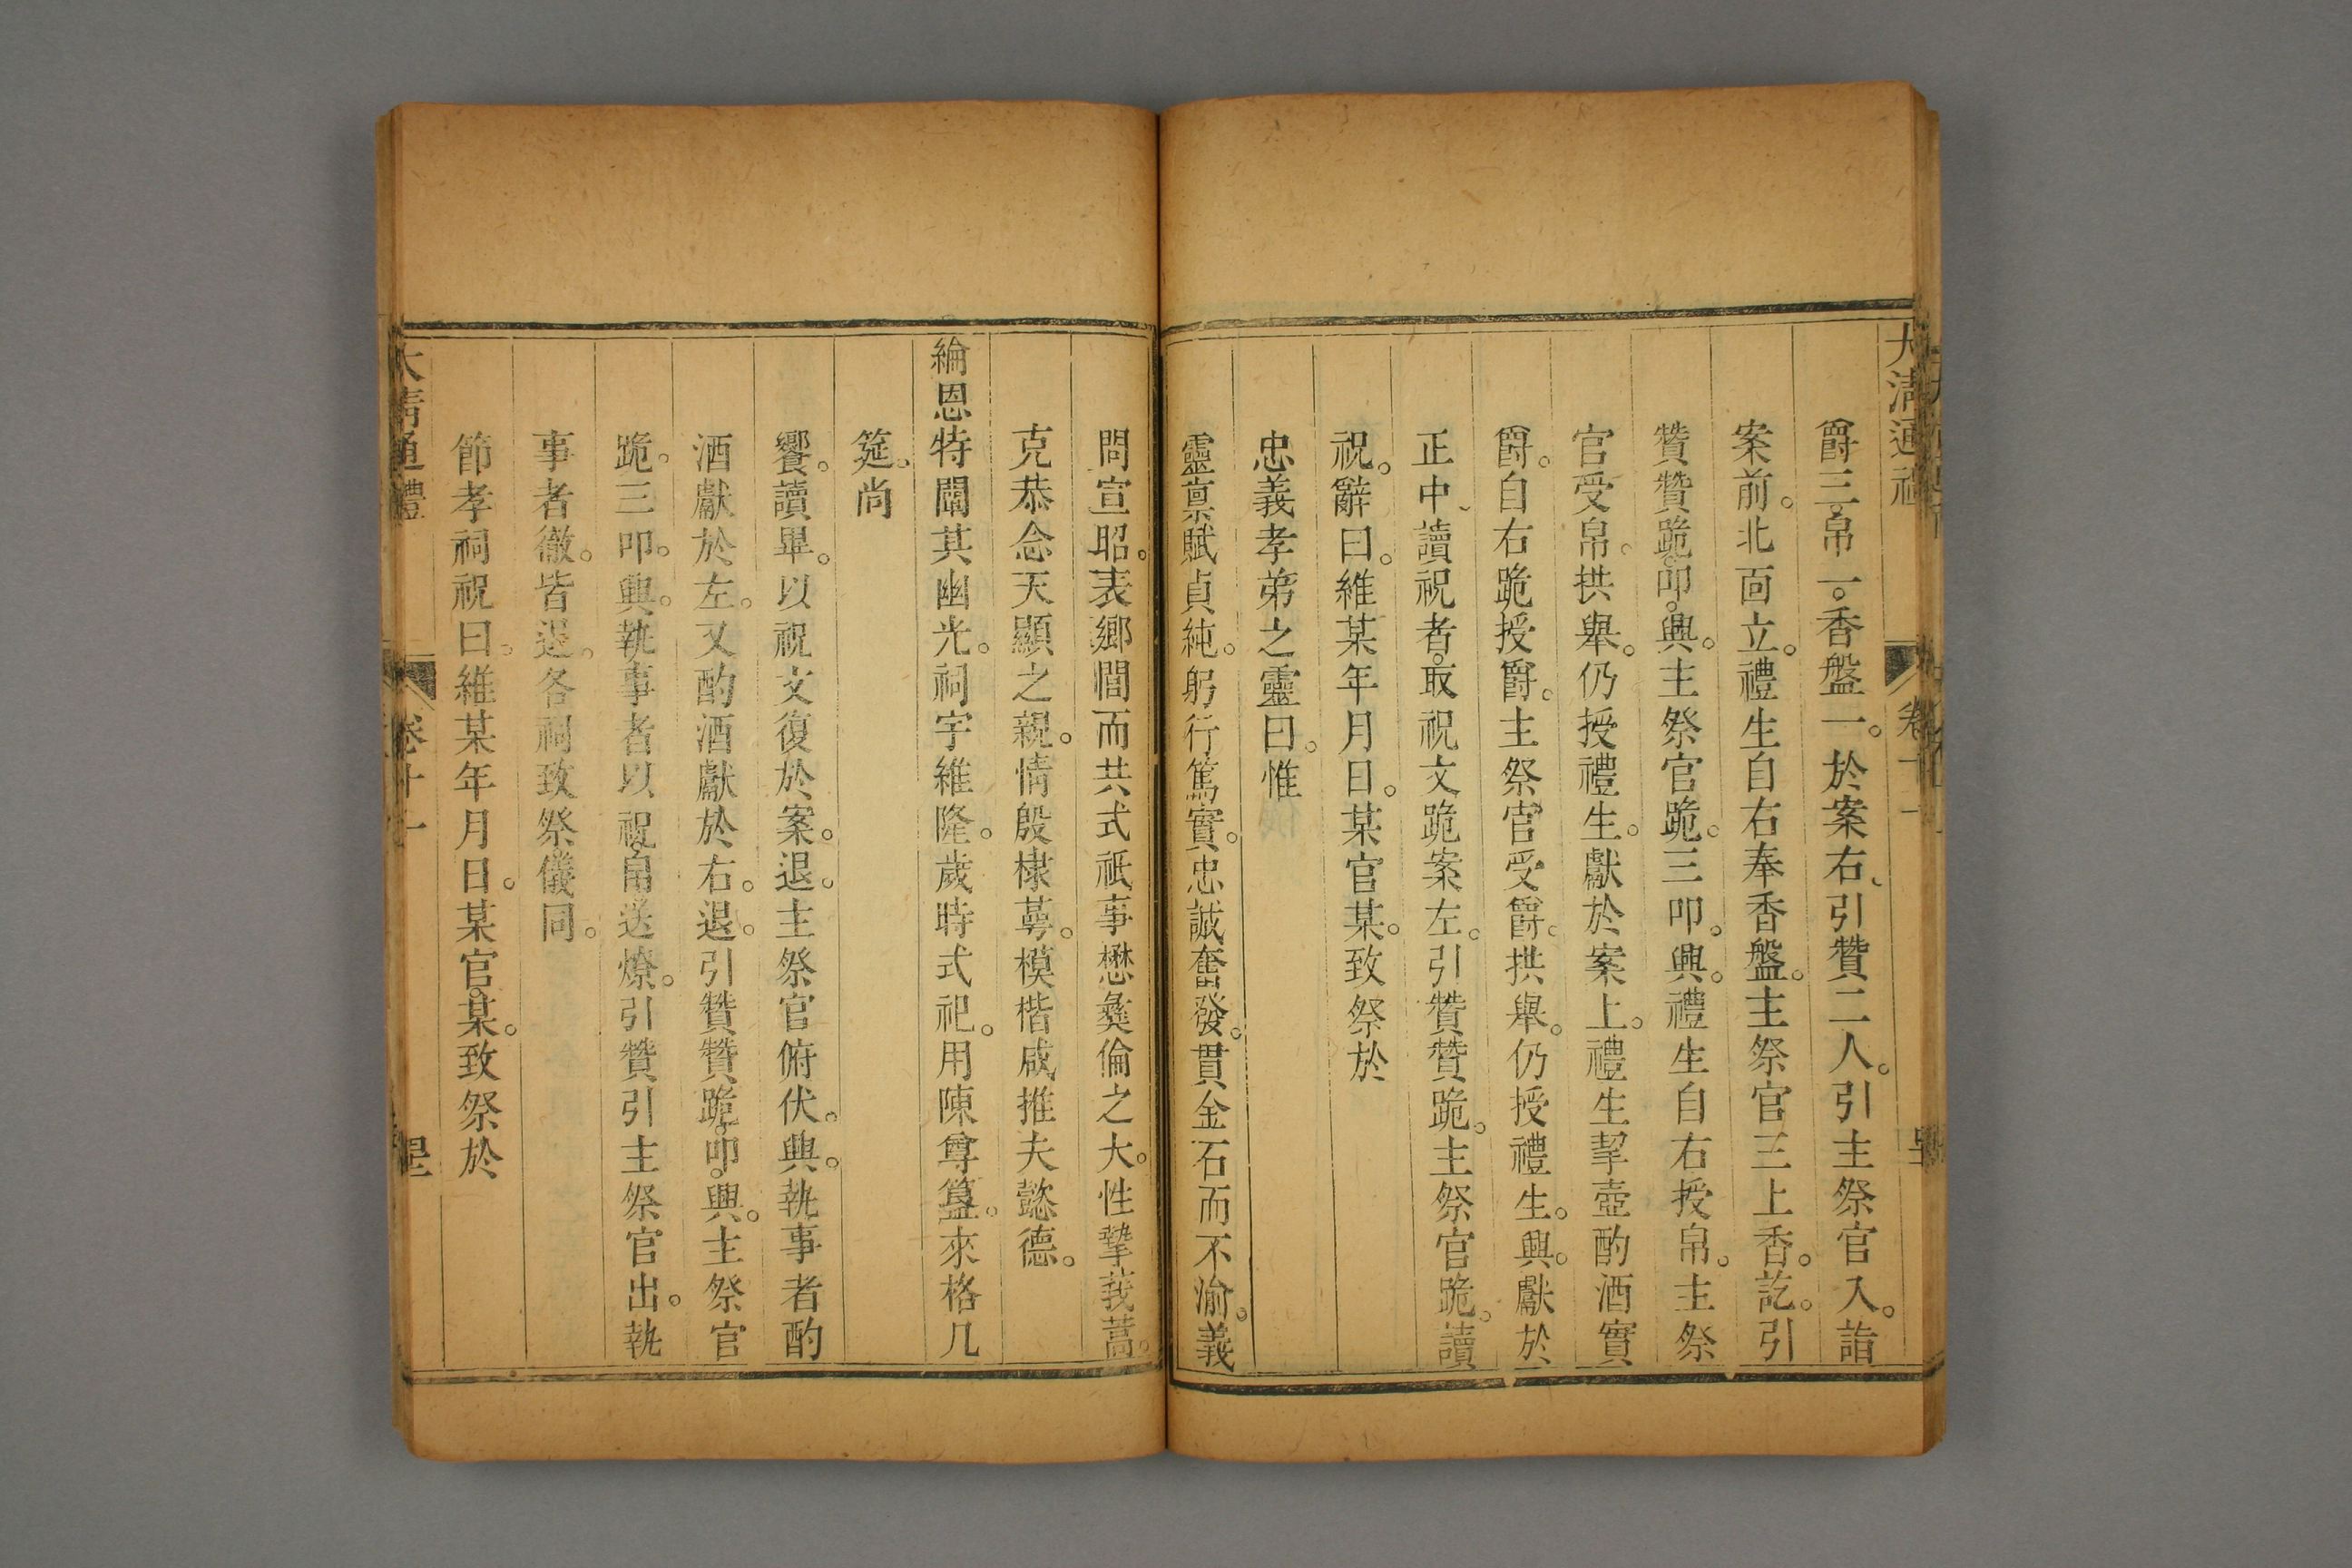 大清通禮 卷十一
爵三。帛一。香盤一。於案右、引贊二人。引主祭官入。詣
案前。北面立。禮生自右奉香盤。主祭官三上香。訖。引
贊贊跪。叩。興。主祭官跪。三叩。興。禮生自右授帛。主祭
官受帛。拱舉。仍授禮生。獻於案上。禮生挈壺酌酒實
爵。自右跪授爵。主祭官受爵。拱舉。仍授禮生。興。獻於
正中、讀祝者。取祝文跪案左。引贊贊跪。主祭官跪。讀
祝。辭曰。維某年月日。某官某。致祭於
忠義孝弟之靈曰。惟
靈稟賦貞純。躬行篤實。忠誠奮發。貫金石而不渝。義
問宣昭。表鄉閭而共式祇事懋彝倫之大。性摯莪蒿。
克恭念天顯之親。情殷棣萼。模楷咸推夫懿德。
綸恩特闡其幽光。祠宇維隆。歲時式祀。用陳尊簋。來格几
筵。尚
饗。讀畢。以祝文復於案。退。主祭官俯伏。興。執事者酌
酒獻於左。又酌酒獻於右。退。引贊贊跪。叩。興。主祭官
跪。三叩。興。執事者以祝。帛送燎。引贊引主祭官出。執
事者徹。皆退。各祠致祭儀同。
節孝祠祝曰。維某年月日。某官。某。致祭於
大清通禮 卷十一